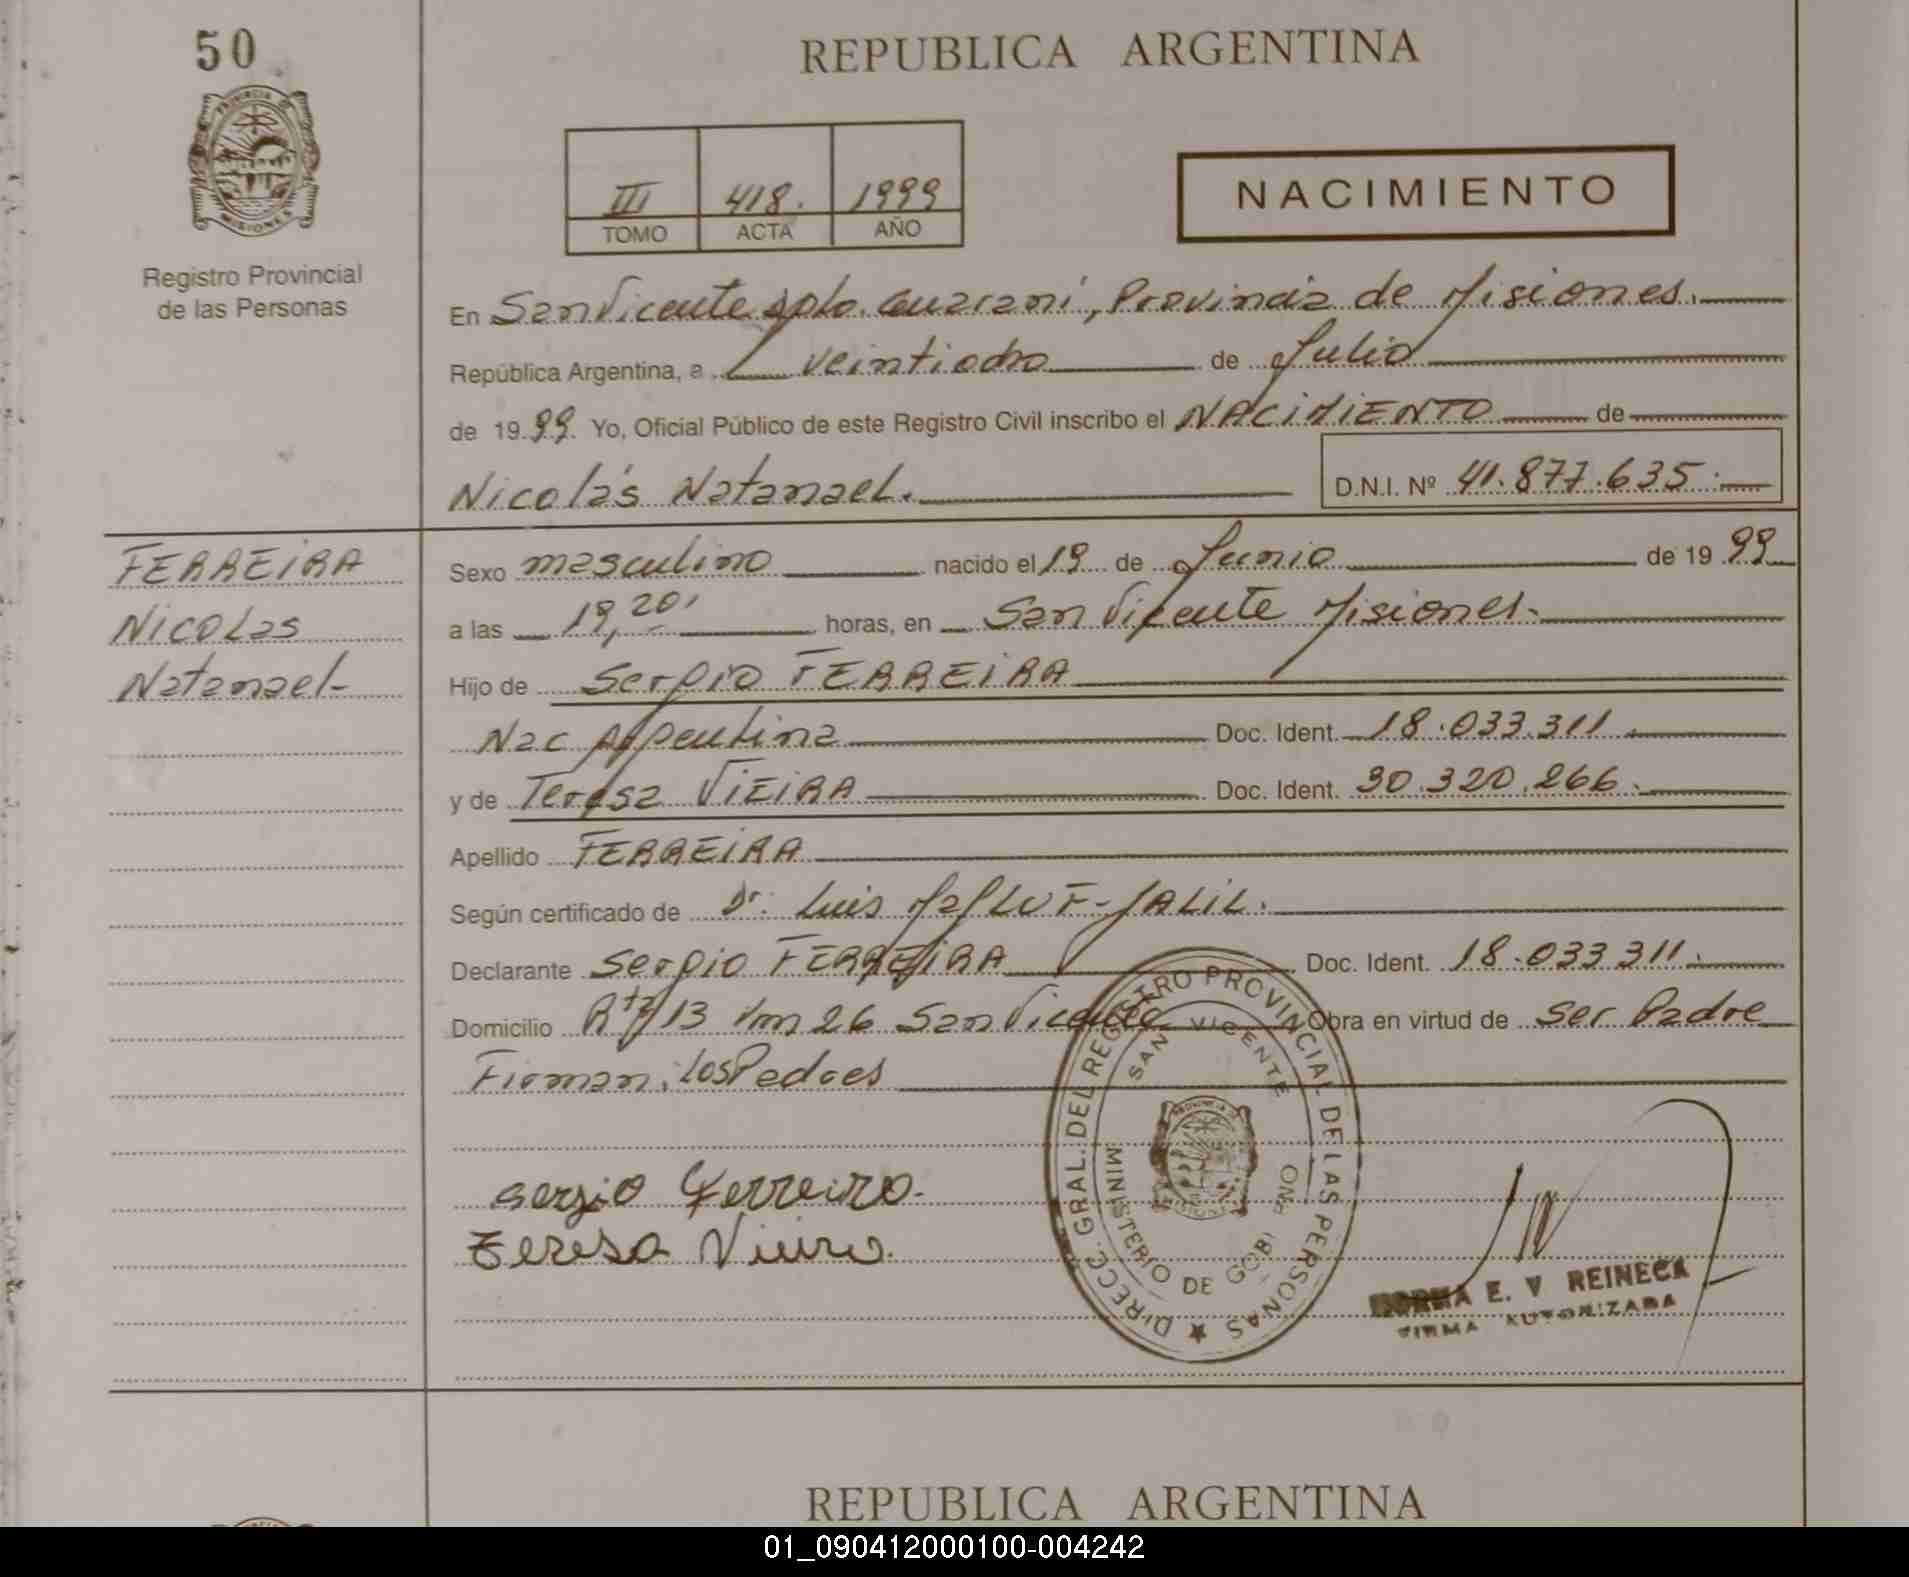 50
REPUBLICA ARGENTINA
PROVINCIA DE
MISIONES
III 418. 1999
TOMO ACTA AÑO
NACIMIENTO
Registro Provincial
de las Personas
En San Vicente dpto. Guarani, Provincia de Misiones.
República Argentina, a veintiocho de Julio
de 1999. Yo, Oficial Público de este Registro Civil inscribo el NACIMIENTO de
Nicolás Natanael. D.N.I. Nº 41.877.635.
FERREIRA
Nicolas
Natanael-
Sexo masculino nacido el 19 de Junio de 1999
a las 19,20' horas, en San Vicente Misiones.
Hijo de Sergio FERREIRA
Nac Argentina Doc. Ident. 18.033.311.
y de Teresa VIEIRA Doc. Ident. 30.320.266.
Apellido FERREIRA
Según certificado de Dr. Luis JALIL.
Declarante Sergio FERREIRA Doc. Ident. 18.033 311.
Domicilio Rta 13 Km 26 San Vicente Obra en virtud de ser Padre
Firman. Los Padres
DIRECC. GRAL. DEL REGISTRO PROVINCIAL DE LAS PERSONAS
SAN VICENTE
MINISTERIO DE GOBIERNO
PROVINCIA DE
MISIONES
Sergio Ferreira.
Teresa Vieira.
NORMA E. V REINECK
FIRMA AUTORIZADA
REPUBLICA ARGENTINA
01_090412000100-004242